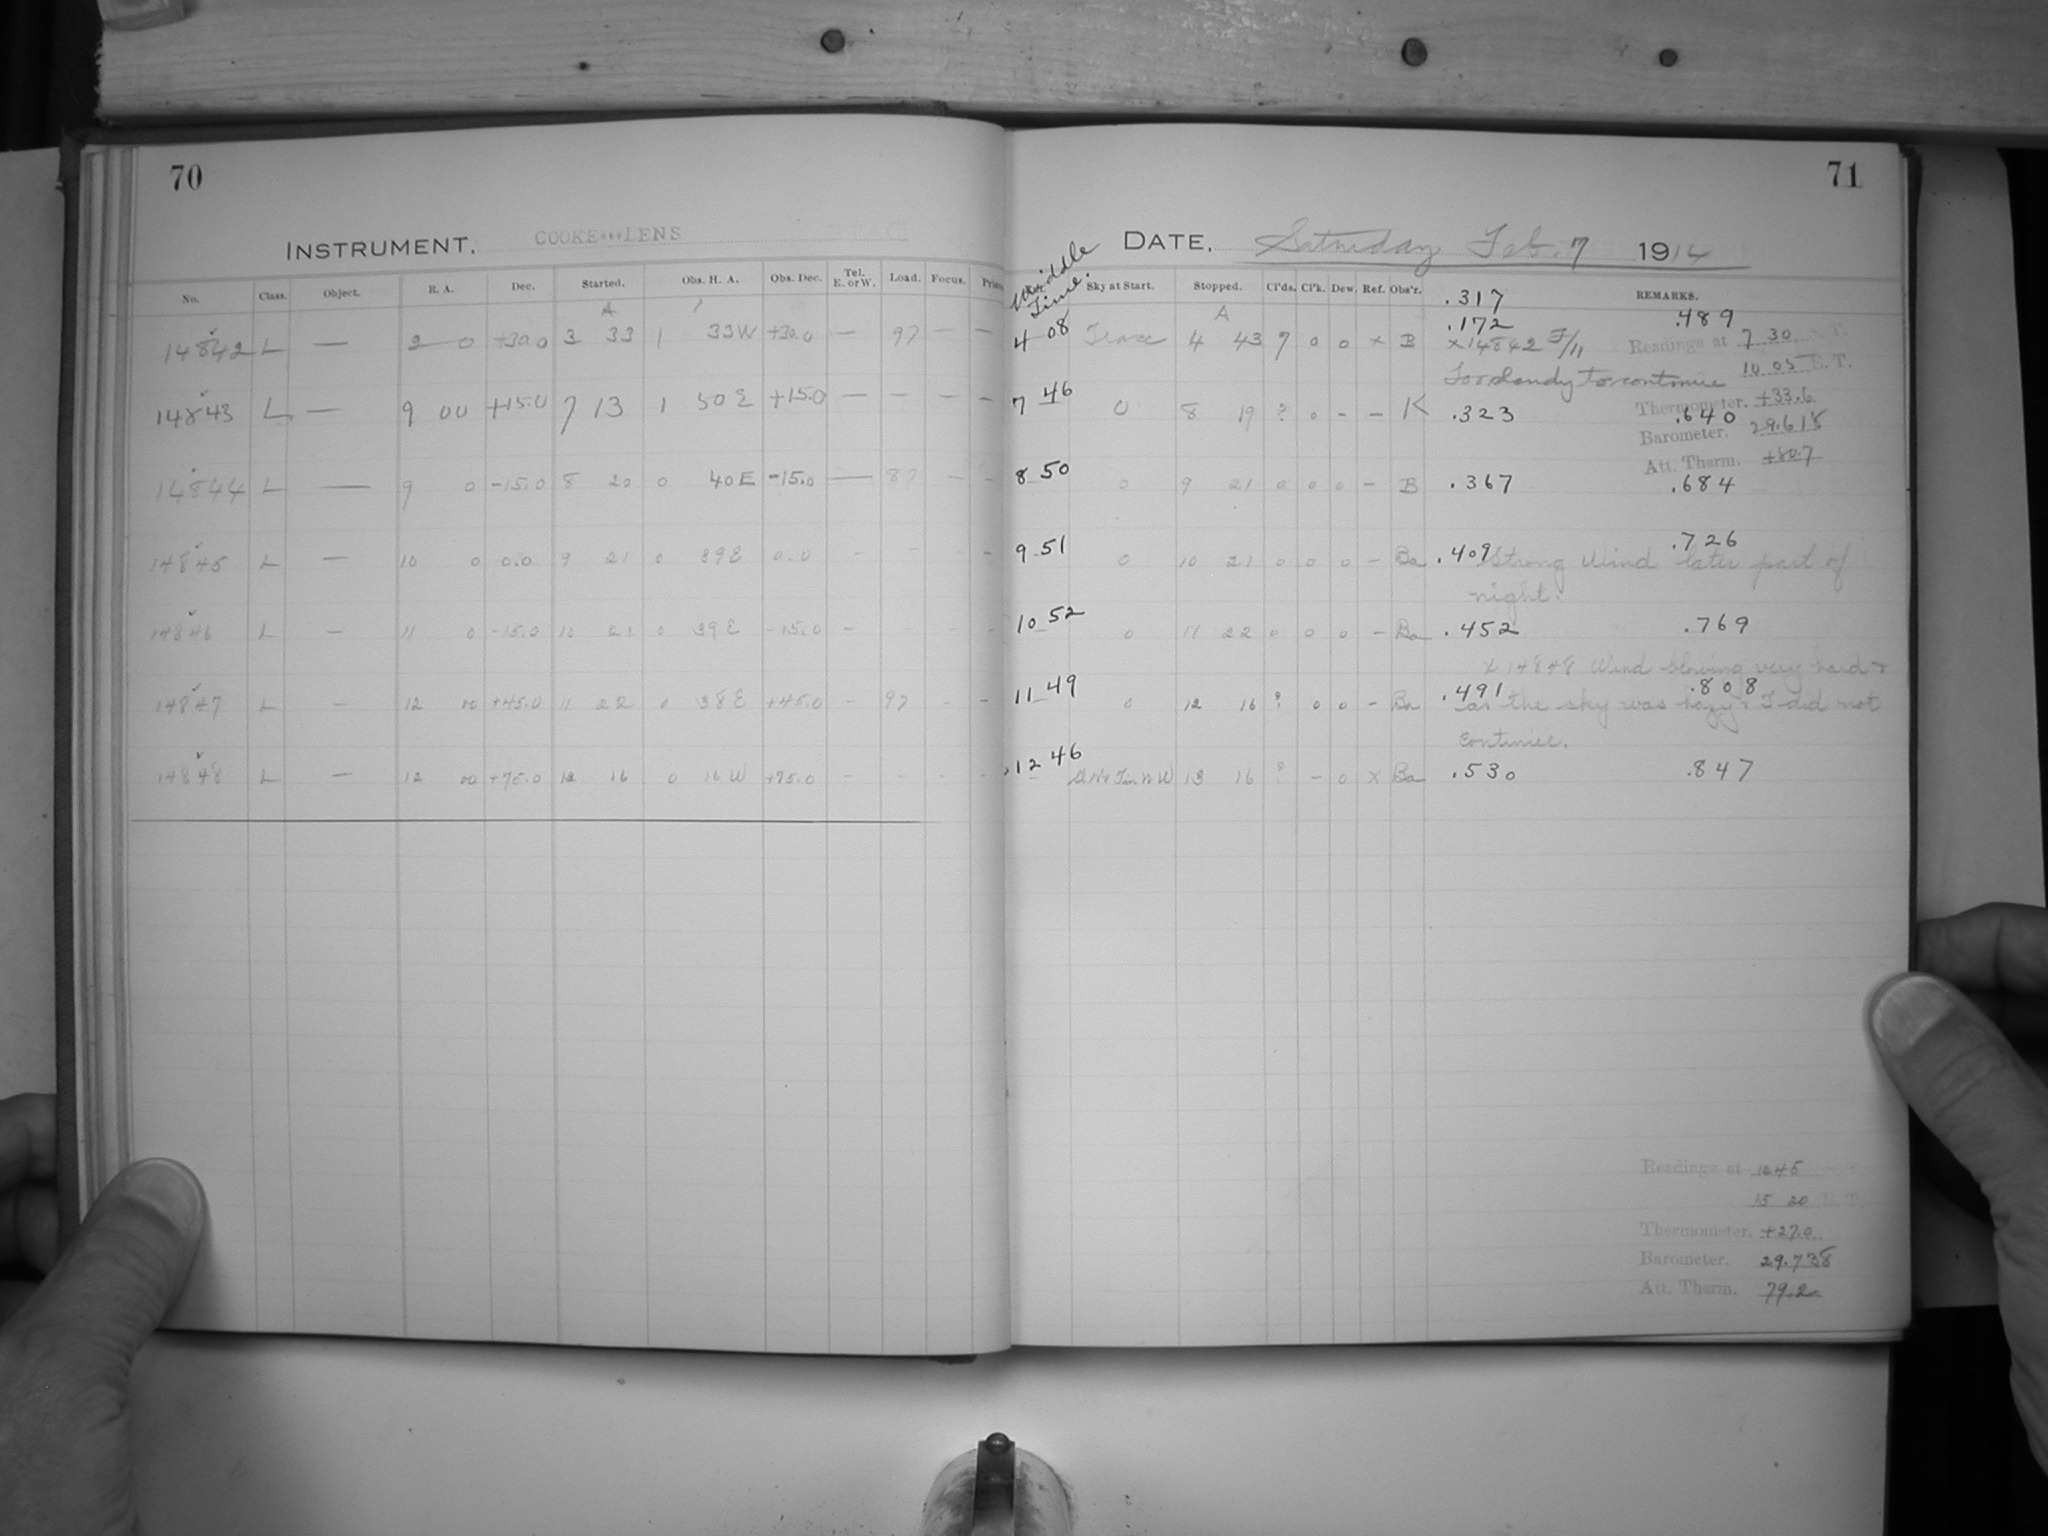 70
INSTRUMENT. COOKE LENS
No. Class. Object. R. A. Dec. Started. Obs. H. A. Obs. Dec. Tel. E. or W. Load. Focus.
14842 L — 2 0 +30.0 3 33 1 33W +30.0 — 97 — —
14843 L — 9 00 +15.0 7 13 1 50 E +15.0 — — — —
14844 L — 9 0 -15.0 8 20 0 40 E -15.0 — 87 — —
14845 L — 10 0 0.0 9 21 0 39 E 0.0 - - - -
14846 L — 11 0 -15.0 10 21 0 39 E -15.0 -
14847 L — 12 00 +45.0 11 22 0 38 E +45.0 - 97 - -
14848 L — 12 00 +75.0 12 16 0 16 W +75.0 - - - -
71
Middle Time.
DATE, Saturday Feb. 7 1914
Sky at Start. Stopped. Cl'ds. Cl'k. Dew. Ref. Obs'r. REMARKS.
.317
.172 .489
4 08 4 43 7 0 0 x B x 14842 F/11
Readings at 7 30
10 05 E. T.
to continue
7 46 0 8 19 ? 0 - - K .323 .640
Thermometer. +33.6
Barometer. 29.618
Att. Therm. +80.7
8 50 0 9 21 0 0 0 - B .367 .684
9 51 0 10 21 0 0 0 - Ba .409 .726
Strong Wind later part of
night.
10 52 0 11 22 0 0 0 - Ba .452 .769
x 14848 Wind blowing very hard &
11 49 0 12 16 ? 0 0 - Ba .491 .808
as the sky was hazy I did not
continue.
12 46 13 16 ? - 0 x Ba .530 .847
Readings at 12 45
15 20 E. T.
Thermometer. +27.0
Barometer. 29.738
Att. Therm. 79.2